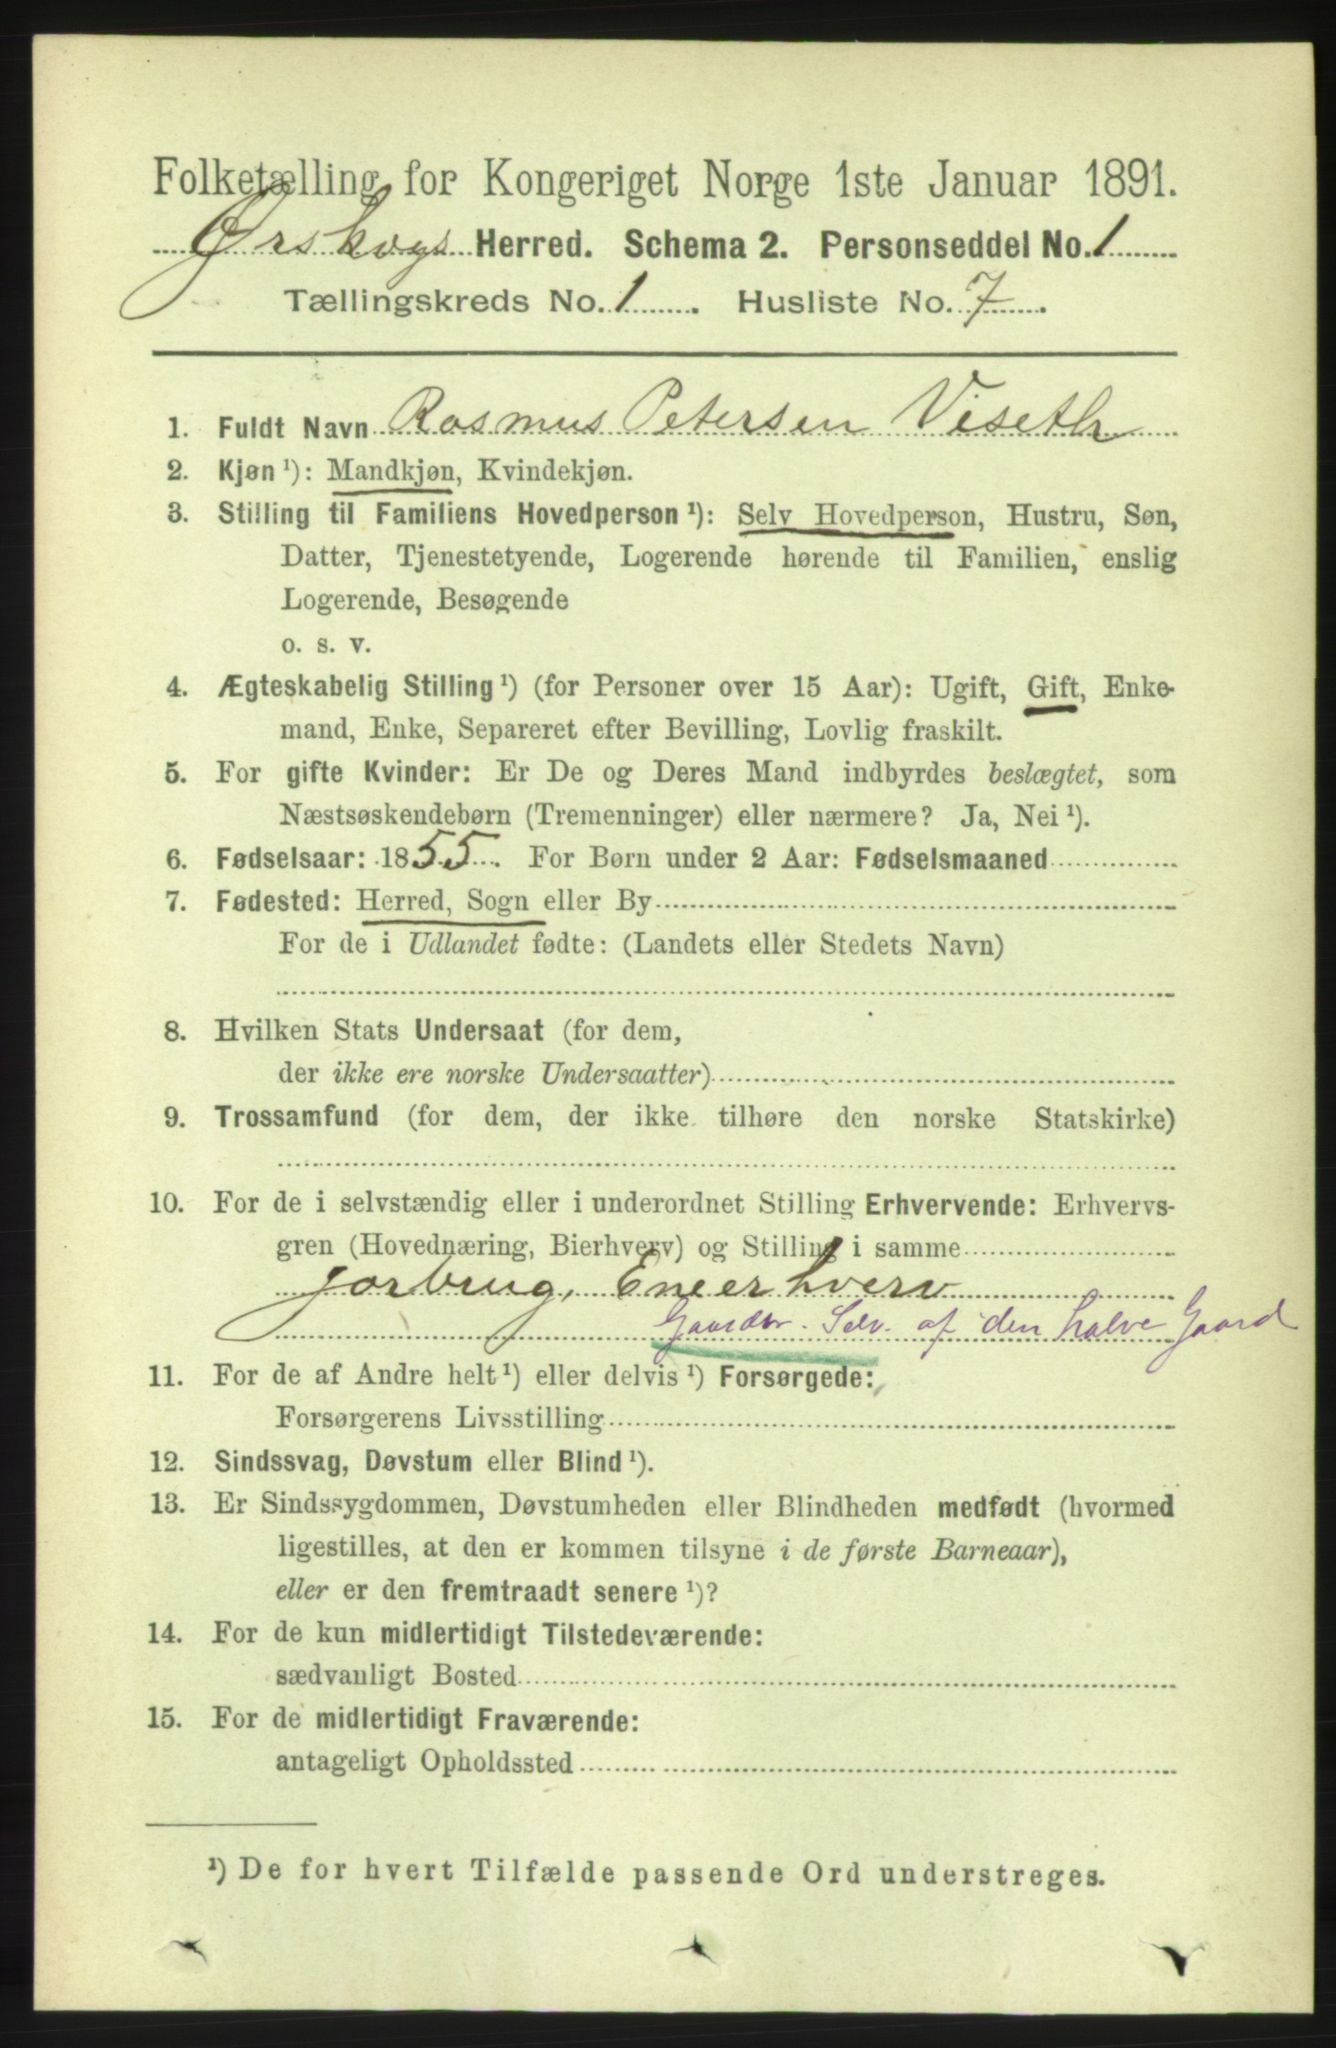 Folketælling for Kongeriget Norge 1ste Januar 1891.
Ørskogs Herred. Schema 2. Personseddel No. 1
Tællingskreds No. 1. Husliste No. 7.
1. Fuldt Navn Rasmus Petersen Viseth
2. Kjøn ¹): Mandkjøn, Kvindekjøn.
3. Stilling til Familiens Hovedperson ¹): Selv Hovedperson, Hustru, Søn,
Datter, Tjenestetyende, Logerende hørende til Familien, enslig
Logerende, Besøgende
o. s. v.
4. Ægteskabelig Stilling ¹) (for Personer over 15 Aar): Ugift, Gift, Enke-
mand, Enke, Separeret efter Bevilling, Lovlig fraskilt.
5. For gifte Kvinder: Er De og Deres Mand indbyrdes beslægtet, som
Næstsøskendebørn (Tremenninger) eller nærmere? Ja, Nei ¹).
6. Fødselsaar: 1855. For Børn under 2 Aar: Fødselsmaaned
7. Fødested: Herred, Sogn eller By
For de i Udlandet fødte: (Landets eller Stedets Navn)
8. Hvilken Stats Undersaat (for dem,
der ikke ere norske Undersaatter)
9. Trossamfund (for dem, der ikke tilhøre den norske Statskirke)
10. For de i selvstændig eller i underordnet Stilling Erhvervende: Erhvervs-
gren (Hovednæring, Bierhverv) og Stilling i samme
Jorbrug, Eneerhverv
Gaardbr. Selv. af den halve Gaard
11. For de af Andre helt ¹) eller delvis ¹) Forsørgede:
Forsørgerens Livsstilling
12. Sindssvag, Døvstum eller Blind ¹).
13. Er Sindssygdommen, Døvstumheden eller Blindheden medfødt (hvormed
ligestilles, at den er kommen tilsyne i de første Barneaar),
eller er den fremtraadt senere ¹)?
14. For de kun midlertidigt Tilstedeværende:
sædvanligt Bosted
15. For de midlertidigt Fraværende:
antageligt Opholdssted
¹) De for hvert Tilfælde passende Ord understreges.